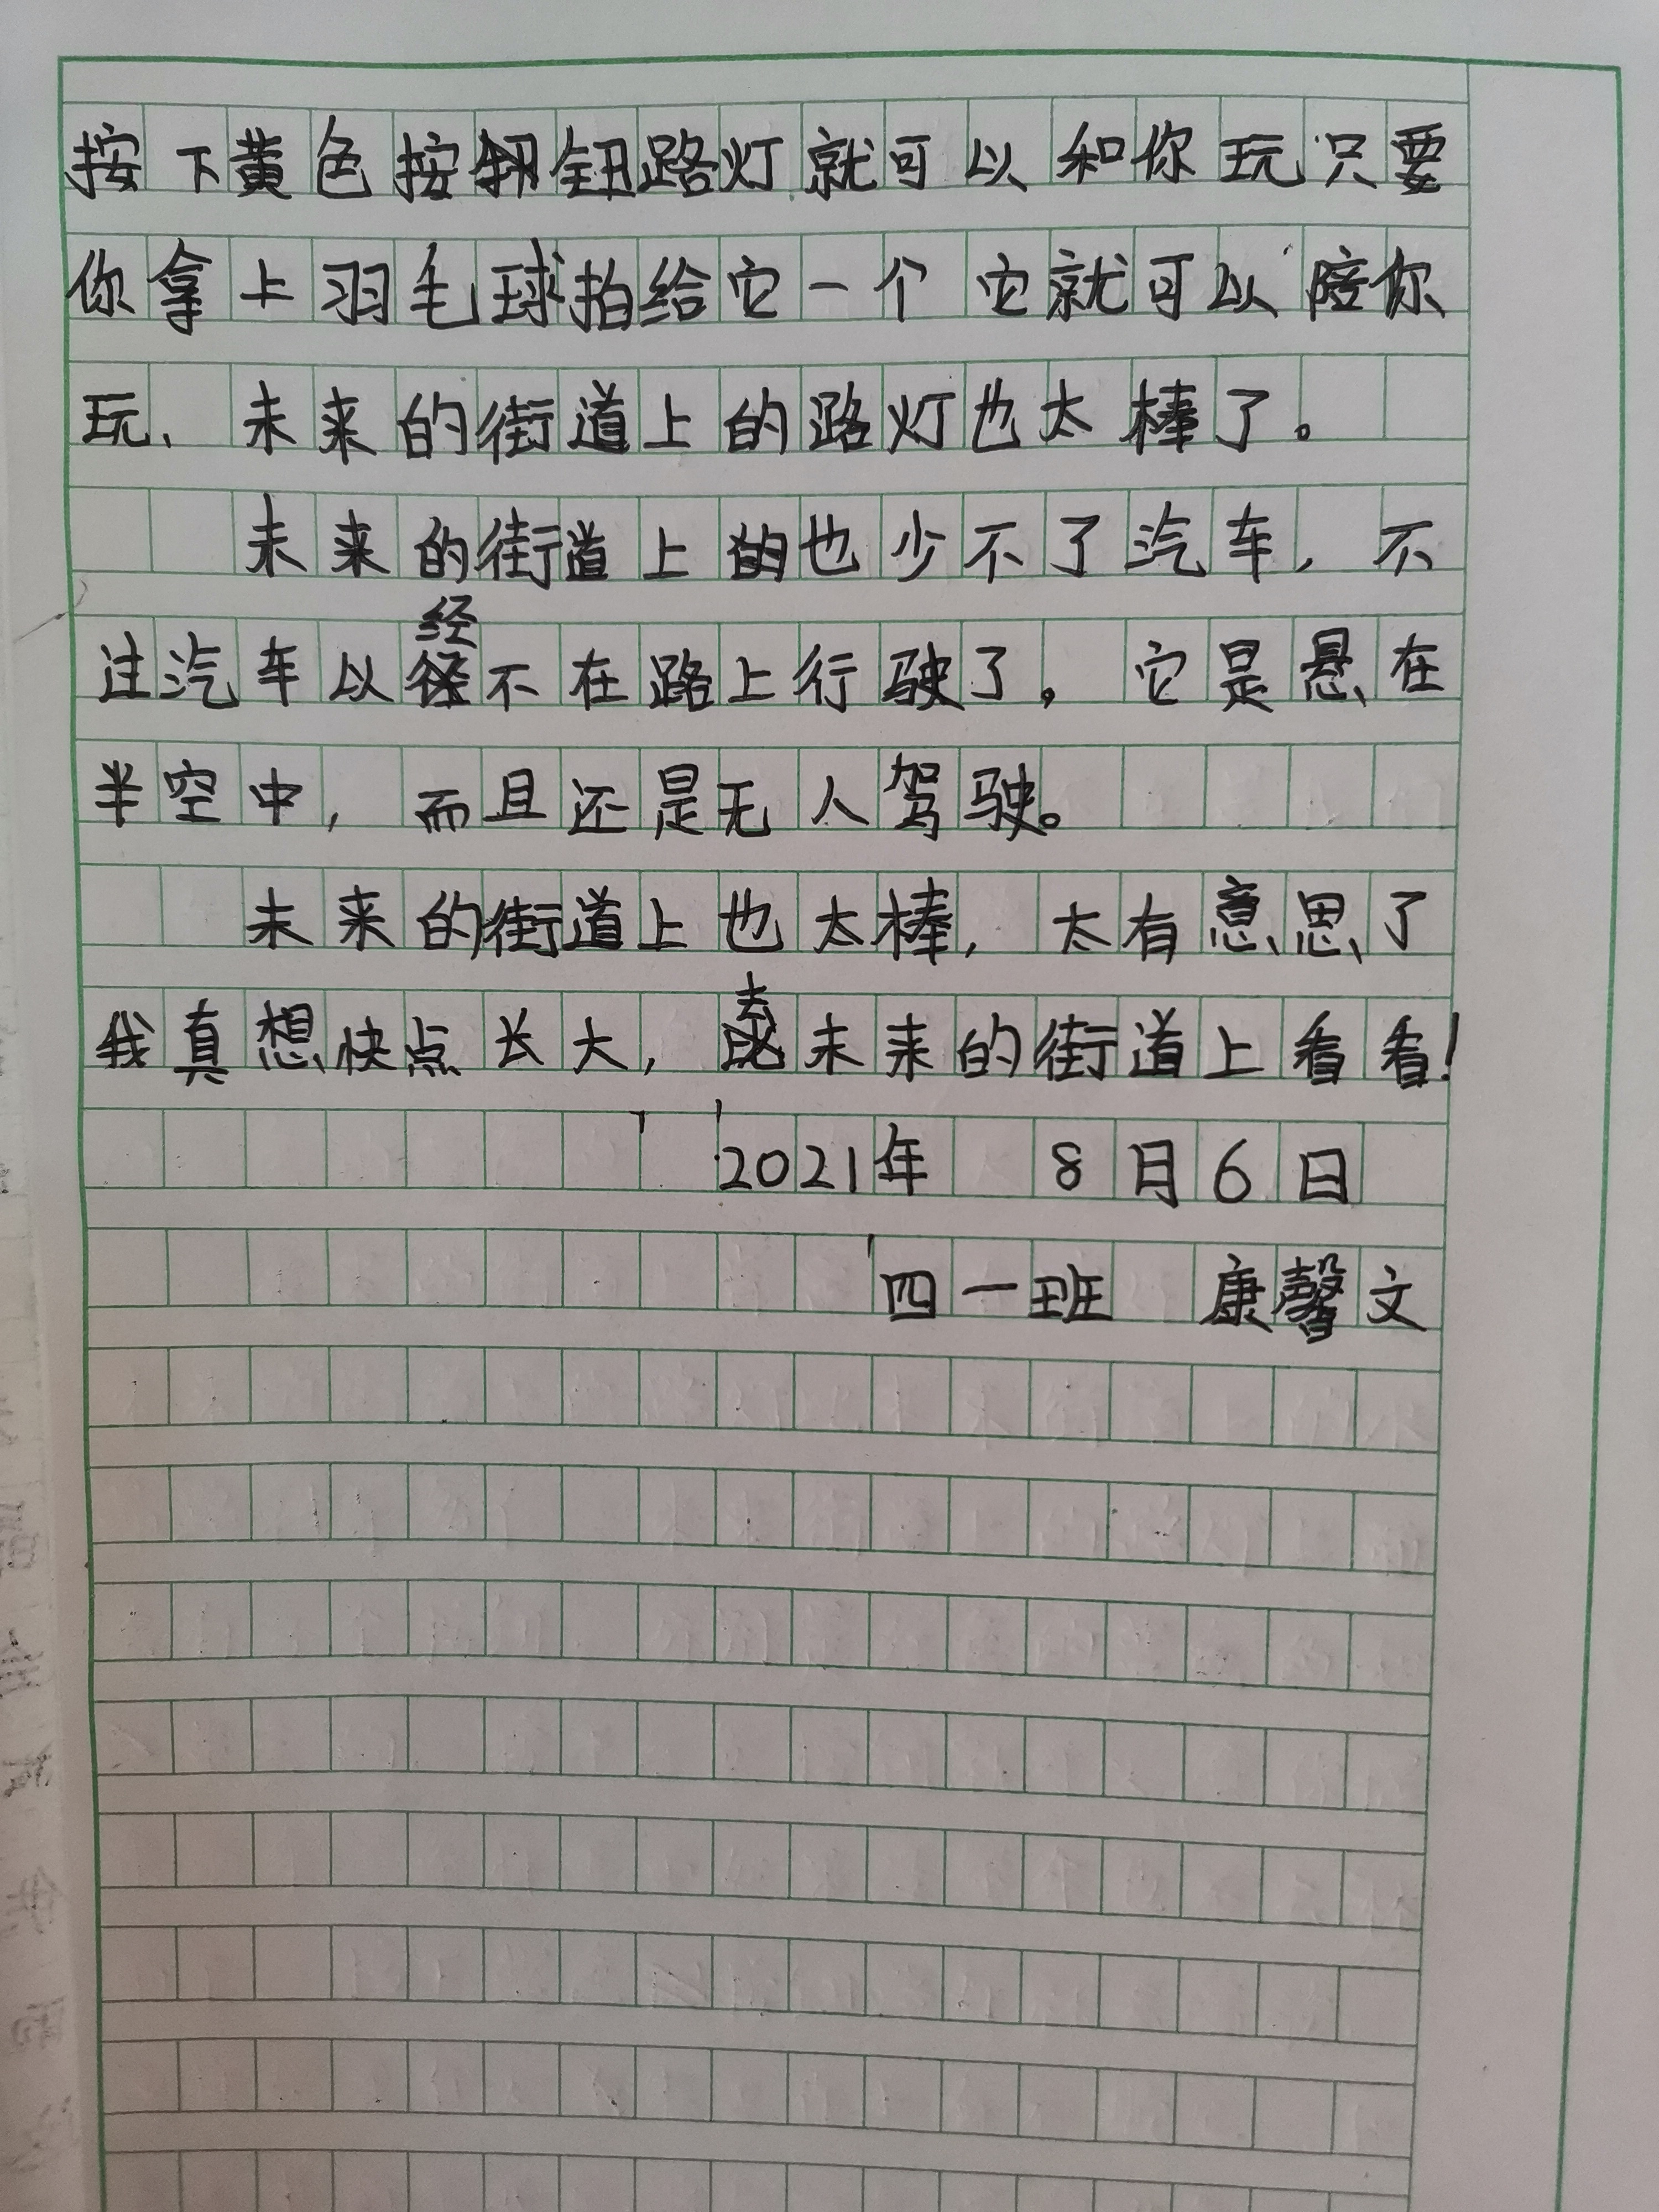 按下黄色按钮路灯就可以和你玩只要
你拿上羽毛球拍给它一个它就可以陪你
玩、未来的街道上的路灯也太棒了。
未来的街道上也少不了汽车，不
过汽车以经不在路上行驶了，它是悬在
半空中，而且还是无人驾驶。
未来的街道上也太棒，太有意思了
我真想快点长大，去未来的街道上看看！
2021年 8月6日
四一班 康馨文